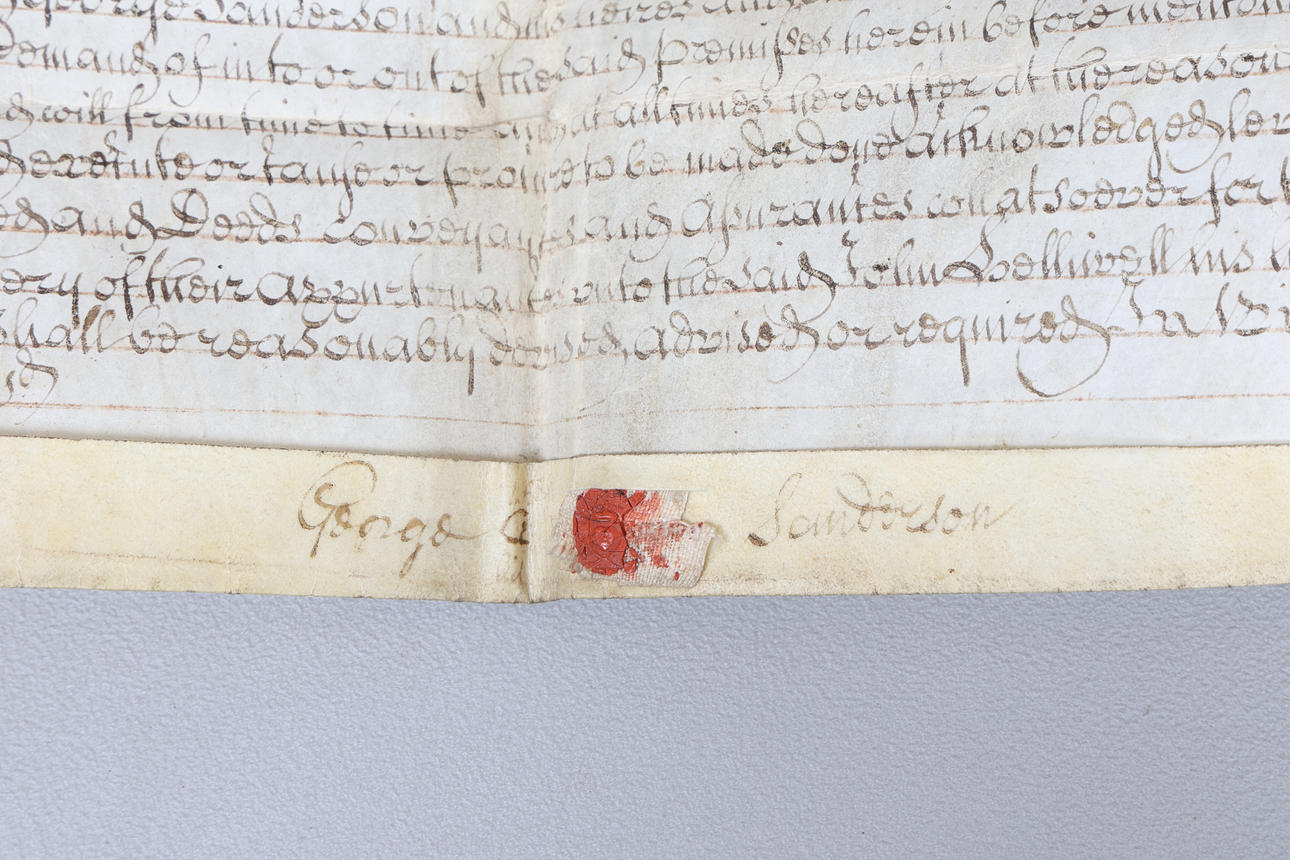 George Sanderson and his heires
Demand of in to or out of the said Premisses herein before mention
will from time to time and at all times hereafter at the reason
or cause or procure to be made done acknowledged
and Deeds Conveyances and Assurances whatsoever for
of their Appurtenances unto the said John Helliwell his
shall be reasonably devised advised or required In
George Sanderson